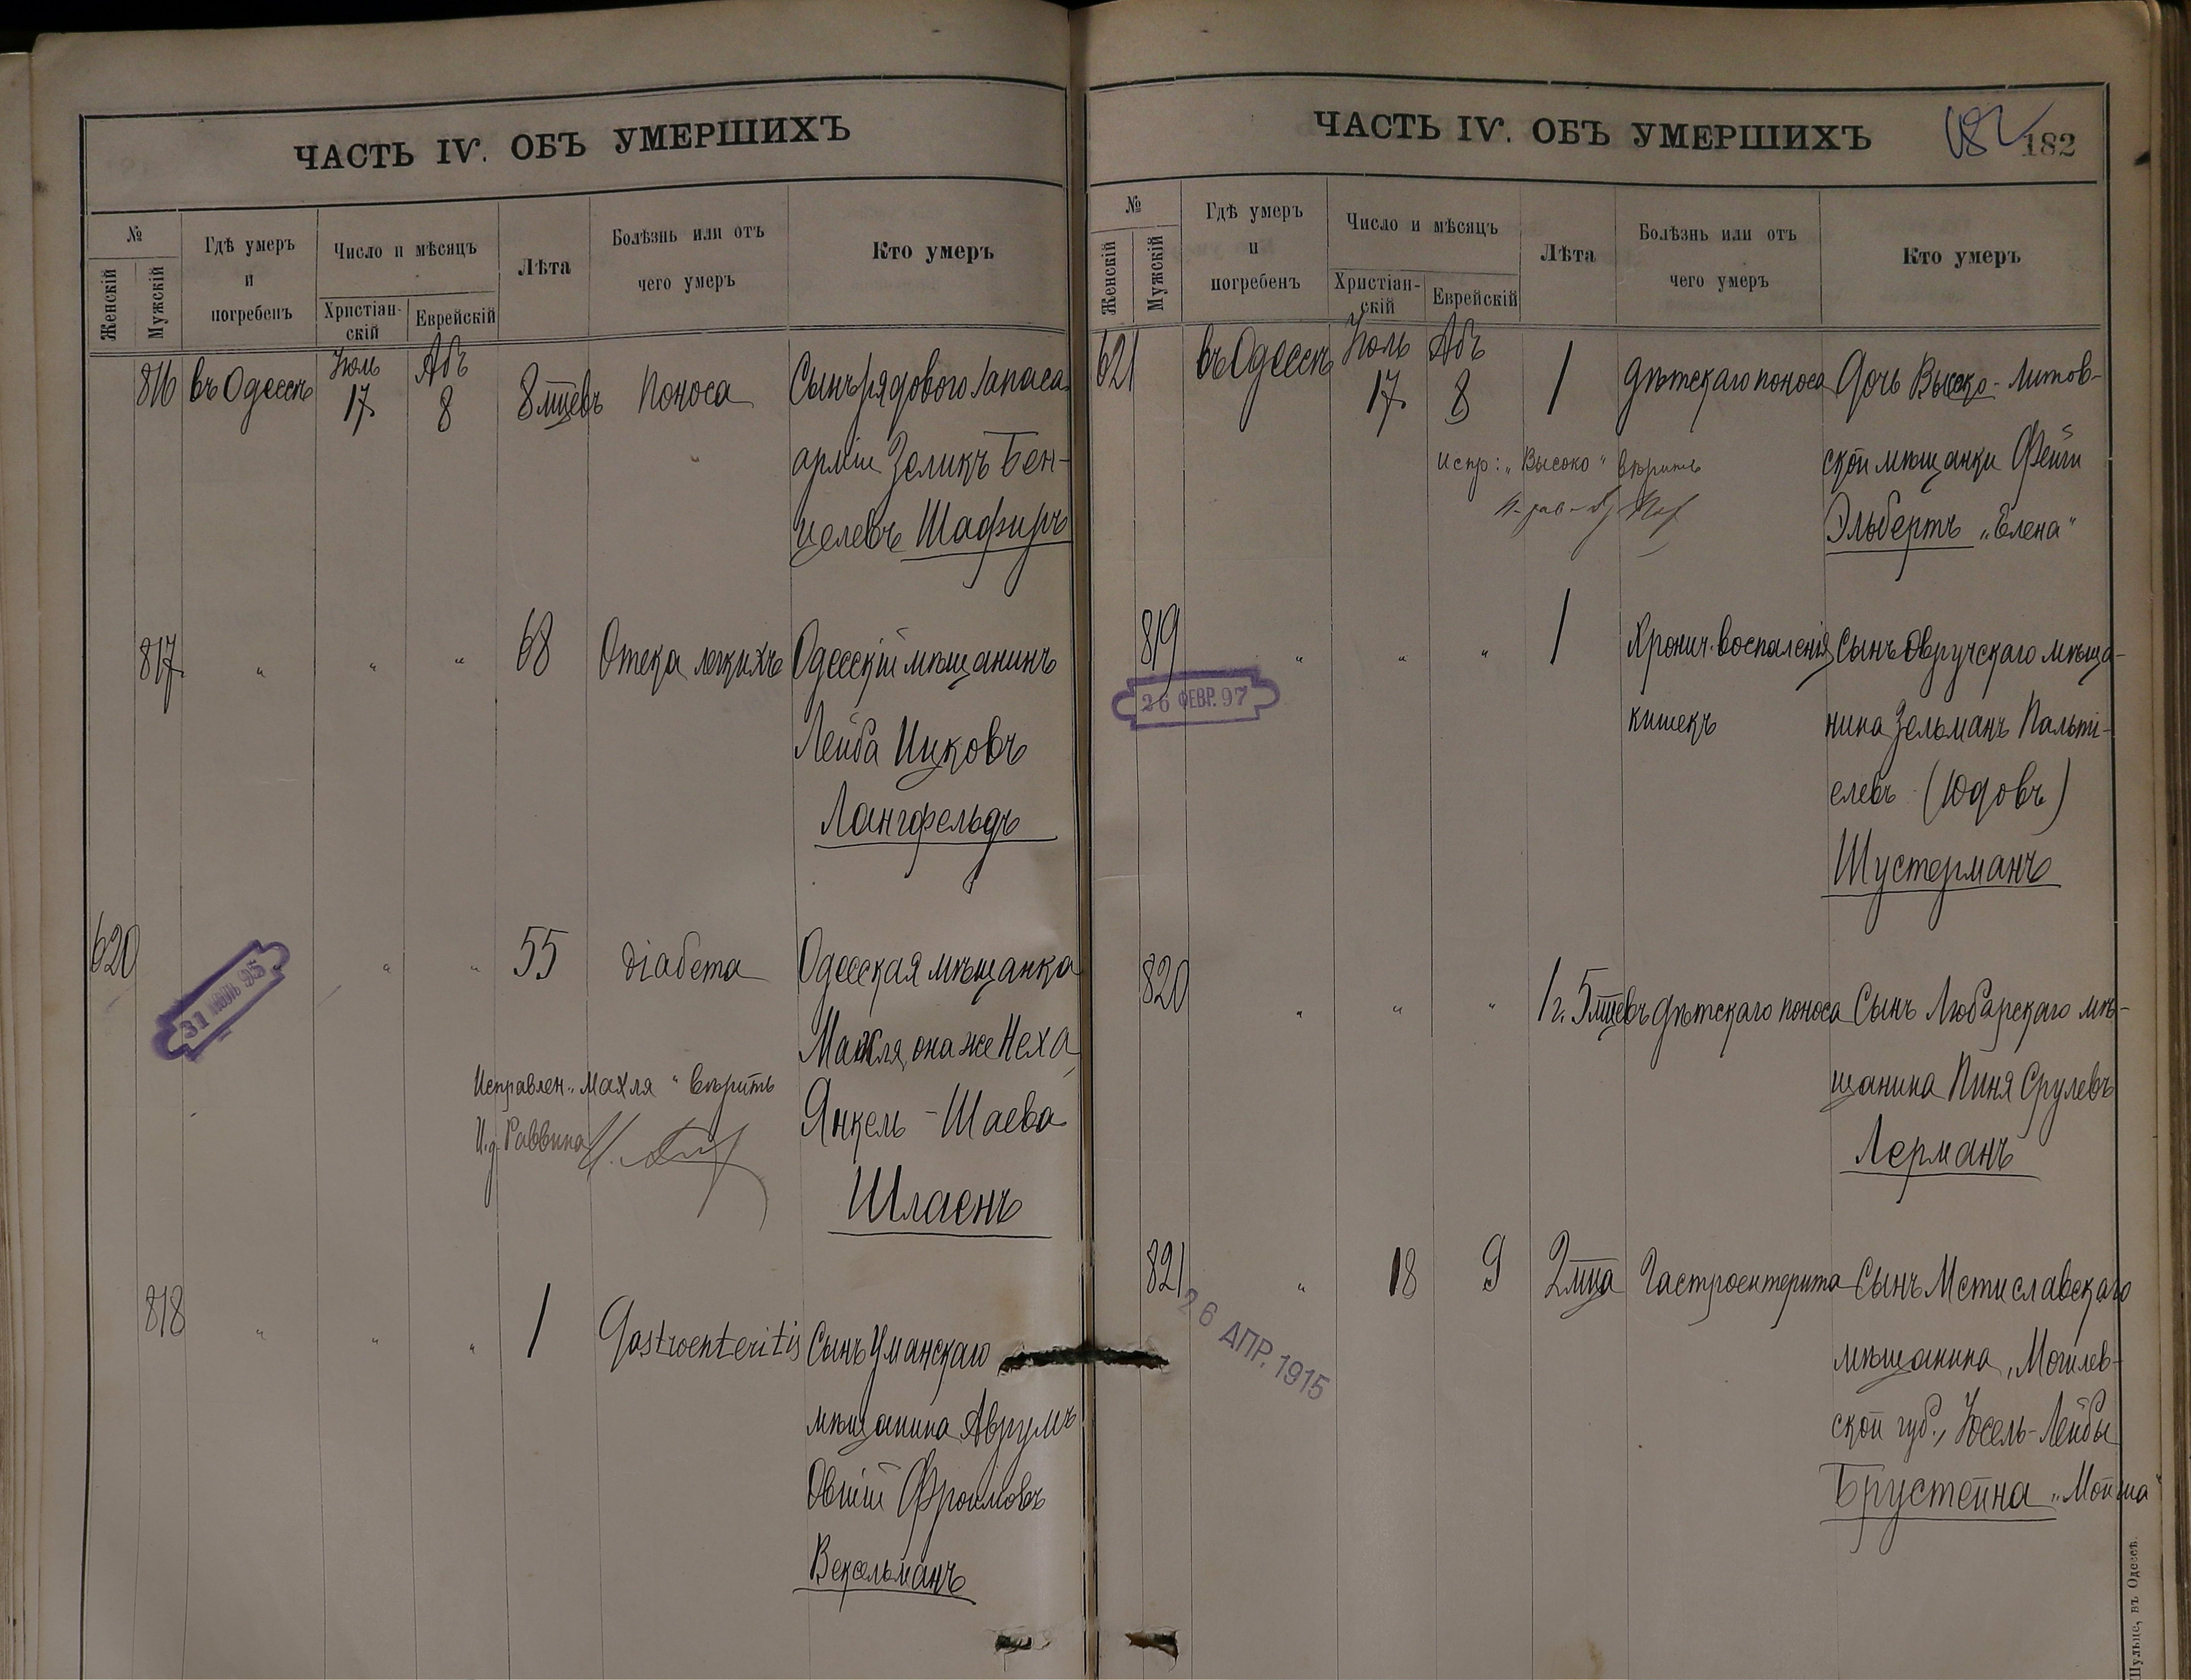 ЧАСТЬ IV. ОБЪ УМЕРШИХЪ
№
Женскій
Мужскій
Гдѣ умеръ
и
погребенъ
Число и мѣсяцъ
Христіан-
скій
Еврейскій
Лѣта
Болѣзнь или отъ
чего умеръ
Кто умеръ
816 въ Одессѣ Іюль 17 Абъ 8 8 мцевъ Поноса Сынъ рядового запаса
арміи Зеликъ Бен-
целевъ Шафиръ
817 " " " 68 Отека легкихъ Одесскій мѣщанинъ
Лейба Ицковъ
Лангфельдъ
620 " " 55 Діабета Одесская мѣщанка
31 95
Махля, она же Неха
Исправлен. "Махля" вѣрить
Янкель-Шаева
И.д. Раввина
Шлаенъ
818 " " " 1 Gastroenteritis Сынъ Уманскаго
мѣщанина Аврумъ
Овшій Фроимовъ
Вексельманъ
ЧАСТЬ IV. ОБЪ УМЕРШИХЪ
182
182
№
Женскій
Мужскій
Гдѣ умеръ
и
погребенъ
Число и мѣсяцъ
Христіан-
скій
Еврейскій
Лѣта
Болѣзнь или отъ
чего умеръ
Кто умеръ
621 въ Одессѣ Іюль 17 Абъ 8 1 Дѣтскаго поноса Дочь Высоко-Литов-
испр: "Высоко" вѣрить
ской мѣщанки Фейги
Эльбертъ "Елена"
819 " " " 1 Хронич. воспаленія Сынъ Овручскаго мѣща-
26 ФЕВР. 97
кишекъ нина Зельманъ Пальти-
елевъ (Юдовъ)
Шустерманъ
820 " " " 1 г. 5 мцевъ Дѣтскаго поноса Сынъ Любарскаго мѣ-
щанина Пиня Срулевъ
Лерманъ
821 " 18 9 2 мца Гастроентерита Сынъ Мстиславскаго
26 АПР. 1915
мѣщанина, Могилев-
ской губ., Іосель-Лейбы
Брустейна "Мойша"
Шульце, въ Одессѣ.